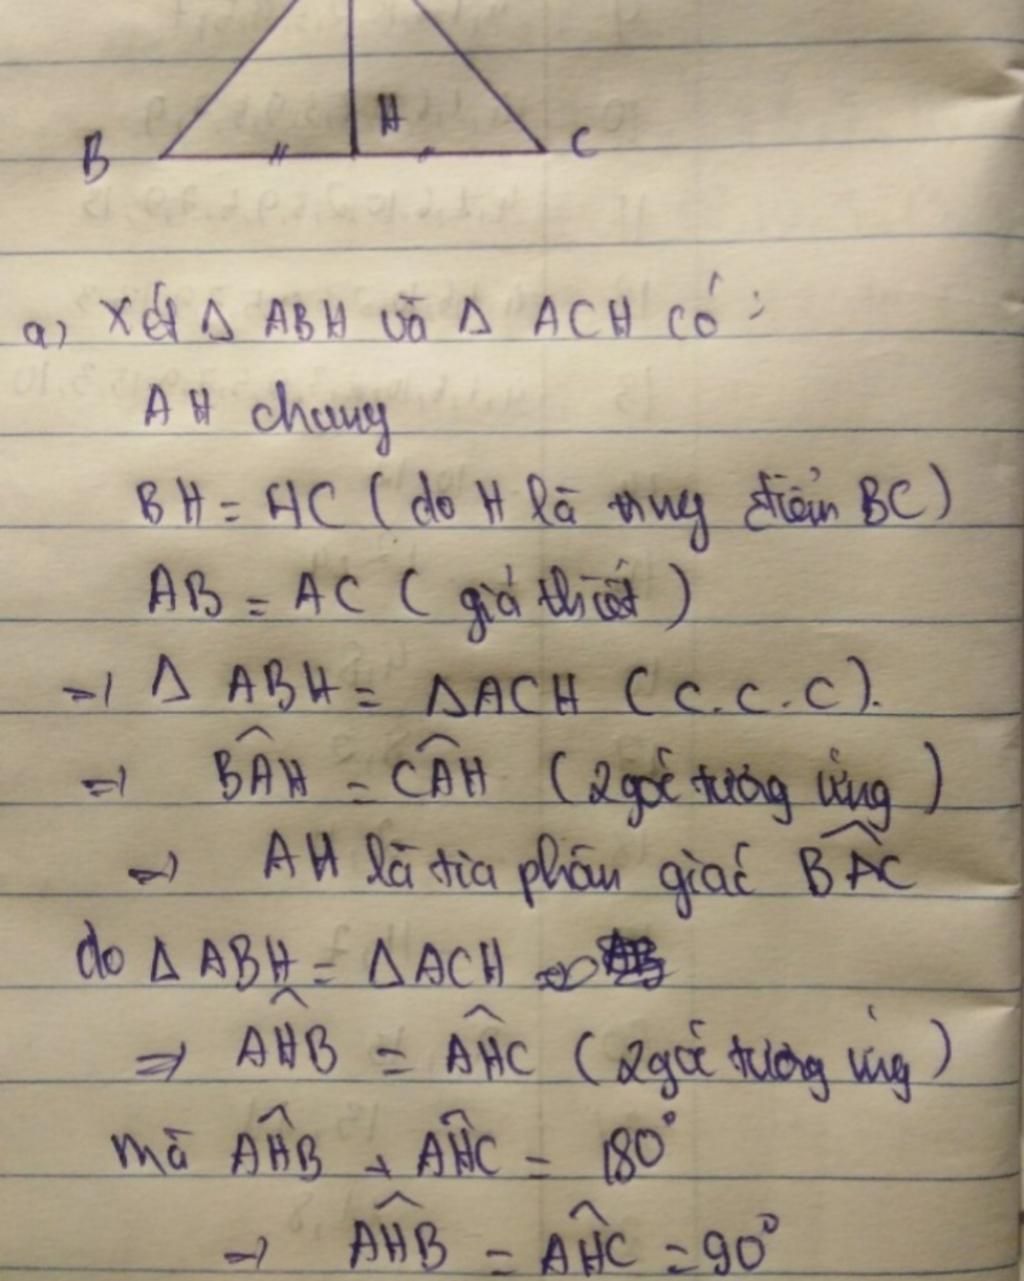 H
B
C
a) Xét Δ ABH và Δ ACH có :
AH chung
BH = HC ( do H là trung điểm BC )
AB = AC ( giả thiết )
=> Δ ABH = Δ ACH ( C. C. C ).
=> BÂH = CÂH ( 2 góc tương ứng )
=> AH là tia phân giác BÂC
do Δ ABH = Δ ACH
=> AĤB = AĤC ( 2 góc tương ứng )
mà AĤB + AĤC = 180°
=> AĤB = AĤC = 90°